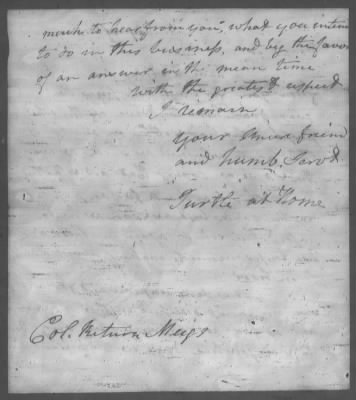 much to hear from you, what you inten
to do in this business, and beg the favo
of an answer in the mean time
with the greatest respect
I remain
your sincer friend
and humb. Servt
Turtle at Home
Col. Return Meigs